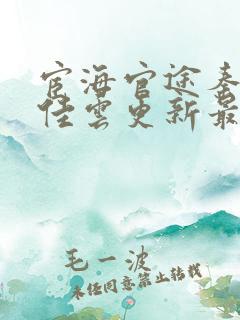 宦海官途秦
佳雲更新最
毛一波
未经同意禁止转载